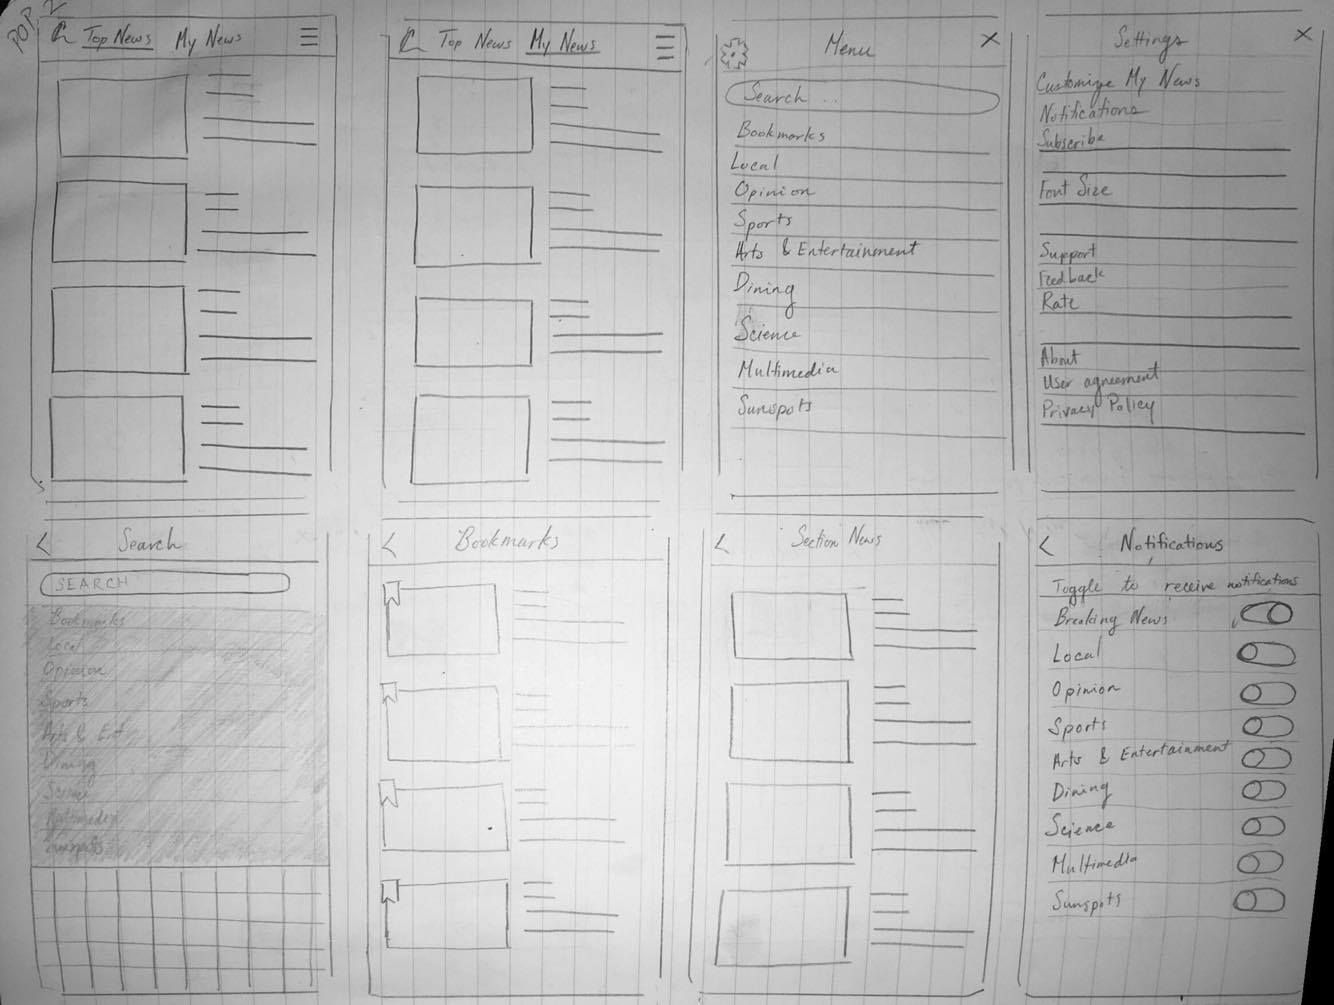 POP 2
Top News My News
Top News My News
Menu
Search ...
Bookmarks
Local
Opinion
Sports
Arts & Entertainment
Dining
Science
Multimedia
Sunspots
Settings
Customize My News
Notifications
Subscribe
Font Size
Support
Feedback
Rate
About
User agreement
Privacy Policy
Search
SEARCH
Bookmarks
Local
Opinion
Sports
Arts & Ent
Dining
Science
Multimedia
Sunspots
Bookmarks
Section News
Notifications
Toggle to receive notifications
Breaking News
Local
Opinion
Sports
Arts & Entertainment
Dining
Science
Multimedia
Sunspots